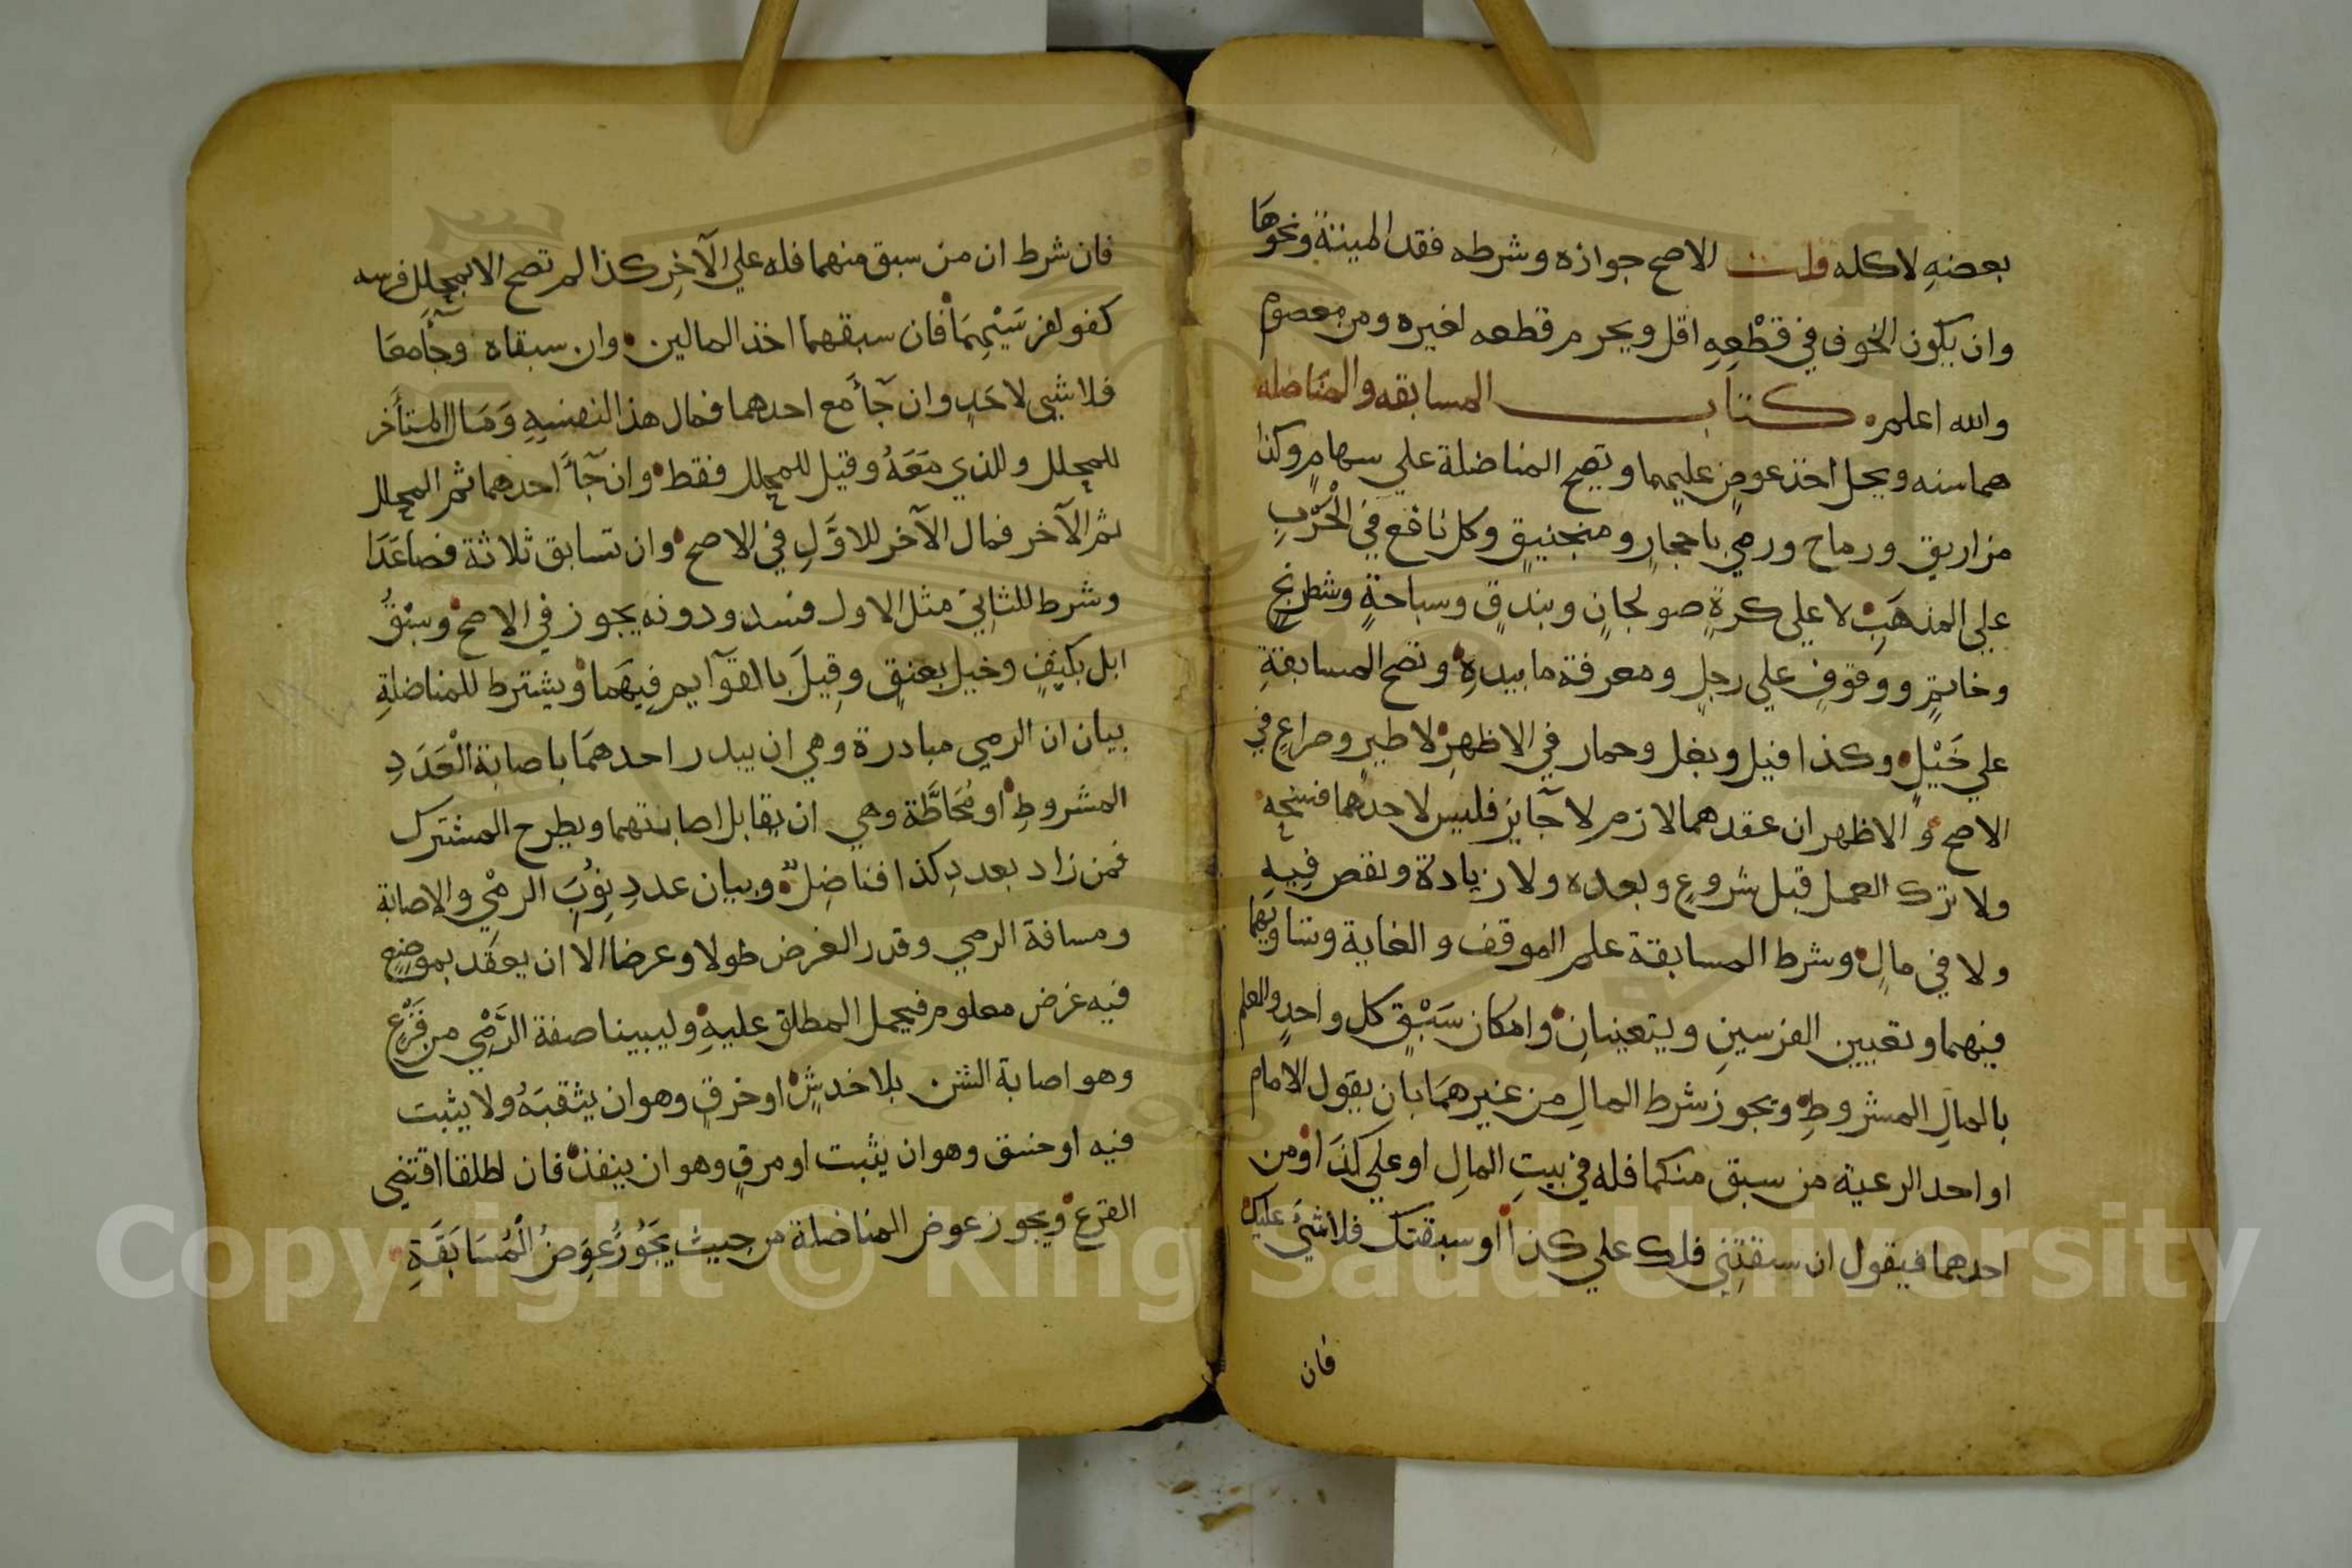 بعضهِ لا كله قلت الاصح جوازه وشرطه فقد الميتة ونحوها
وان يكون الخوف في قَطْعِهِ اقل ويحرم قطعه لغيره ومن معصوم
والله اعلم كتاب المسابقه والمناضله
هما سنه ويحل اخذ عوضٍ عليهما وتصح المناضلة علي سهامٍ وكذا
مزاريق ورماح ورمي باحجارٍ ومنجنيقٍ وكل نافع في الْحَرْبِ
علي المذهَبِ لا علي كرةٍ صولجانٍ وبندقٍ وسباحةٍ وشطرنجٍ
وخاتمٍ ووقوفٍ علي رجلٍ ومعرفة ما بيدهِ وتصح المسابقةِ
علي خَيْلٍ وكذا فيل وبغل وحمار في الاظهرِ لا طيرٍ وصراعٍ في
الاصح و الاظهر ان عقدهما لازم لا جآيز فليس لاحدهما فسخه
ولا ترك العمل قبل شروعٍ وبعده ولا زيادة ونقص فِيهِ
ولا في مالٍ وشرط المسابقة علم الموقف والغاية وتساويهما
فيهما وتعيين الفرسينِ ويتعينانِ وامكان سَبْقٍ كل واحدٍ والعلم
بالمالِ المشروطِ ويجوز شرط المالِ من غيرهمَا بان يقول الامام
او احد الرعية من سبق منكما فله في بيتِ المالِ او علي كذَا ومن
احدهما فيقول ان سبقتِني فلك علي كذا او سبقتك فلا شيَ عليك
فان
فان شرط ان من سبق منهما فله علي الآخِرِ كذا لم تصح الا بمحللٍ فرسه
كفو لفرسَيْهِمَا فان سبقهما اخذ المالين وان سبقاه وجآَ معَا
فلا شيي لاحَدٍ وان جآَ مع احدهما فمال هذا لنفسِهِ وَمَال المتأخر
للمحلل وللذي مَعَهُ وقيل للمحلل فقط وان جآَ احدهما ثم المحلل
ثم الآخر فمال الآخر للاوَّلِ في الاصح وان تسابق ثلاثة فصاعَدَا
وشرط للثانِي مثل الاول فسد ودونه يجوز في الاصح وسبْقُ
ابل بكتِفٍ وخيل بعنقٍ وقِيلَ بالقوآيم فِيهَما ويشترط للمناضلةِ
بيان ان الرمي مبادرة وهي ان يبدر احدهمَا باصابة الْعَدَدِ
المشروطِ او مُحَاطَّة وهي ان يقابل اصابتهما ويطرح المشترك
فمن زاد بعددِ كذا فناضِلٌ وبيان عددِ نِوَبِ الرمْيِ والاصابة
ومسافة الرمي وقدر الغرض طولا وعرضا الا ان يعقد بموضعٍ
فيه غرض معلوم فيحمل المطلق عليهِ وليبينا صفة الرَّمْيِ من قَرْعٍ
وهو اصابة الشن بلا خدشٍ او خرقٍ وهو ان يثقبَهُ ولا يثبت
فيه او خسق وهو ان يثبت او مرقٍ وهو ان ينفذ فان اطلقا اقتضي
القرع ويجوز عوض المناضلة من حيث يَجُوزُ عِوَضُ الْمُسَابَقَةِ
Copyright © King Saud University